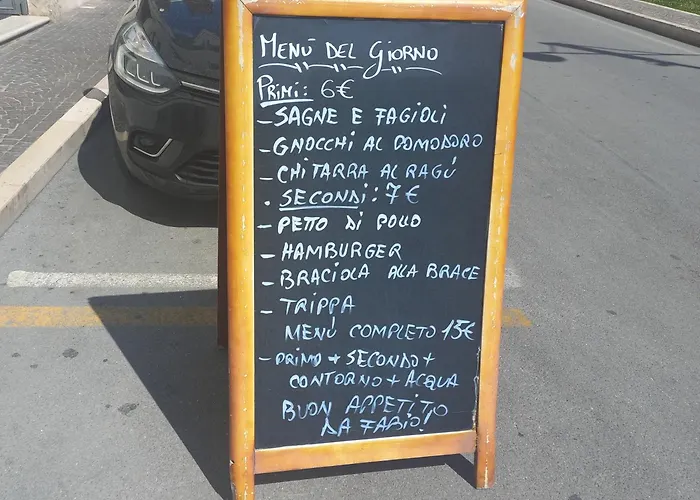 MENÚ DEL GIORNO
PRIMI: 6€
- SAGNE E FAGIOLI
- GNOCCHI AL POMODORO
- CHITARRA AL RAGÚ
. SECONDI: 7€
- PETTO DI POLLO
- HAMBURGER
- BRACIOLA ALLA BRACE
- TRIPPA
MENÚ COMPLETO 15€
- PRIMO + SECONDO +
CONTORNO + ACQUA
BUON APPETITO
DA FABIO!